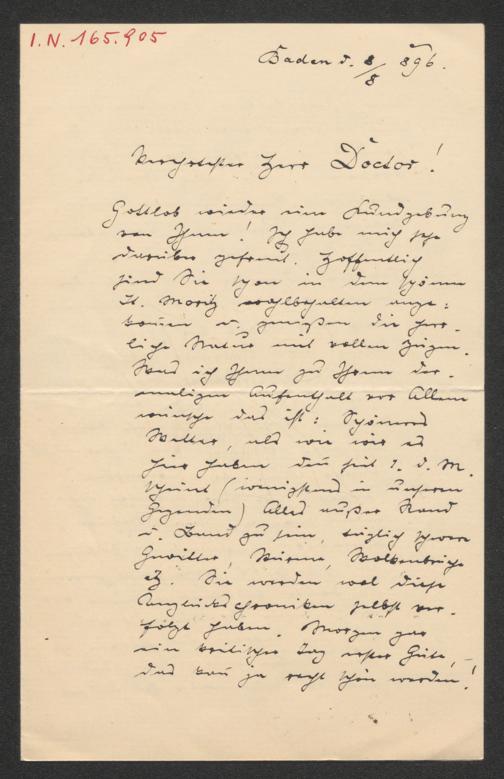 I.N. 165.905
Baden d. 8/8 896.
Verehrtester Herr Doctor!
Gottlob wieder eine Kundgebung
von Ihnen! Ich habe mich sehr
darüber gefreut. Hoffentlich
sind Sie schon in dem schönen
St. Moritz wohlbehalten ange-
kom̄en u. genießen die herr-
liche Natur mit vollen Zügen.
Was ich Ihnen zu Ihrem der-
maligen Aufenthalt vor Allem
wünsche das ist: Schöneres
Wetter, als wie wir es
hier haben den̄ seit 1. d. M.
scheint (wenigstens in unseren
Gegenden) Alles außer Rand
u. Band zu sein, täglich schwere
Gewitter, Stürme, Wolkenbrüche
etz. Sie werden wol diese
Unglückschroniken selbst ver-
folgt haben. Morgen gar
ein kritischer Tag erster Güte, –
das kan̄ ja recht schön werden!